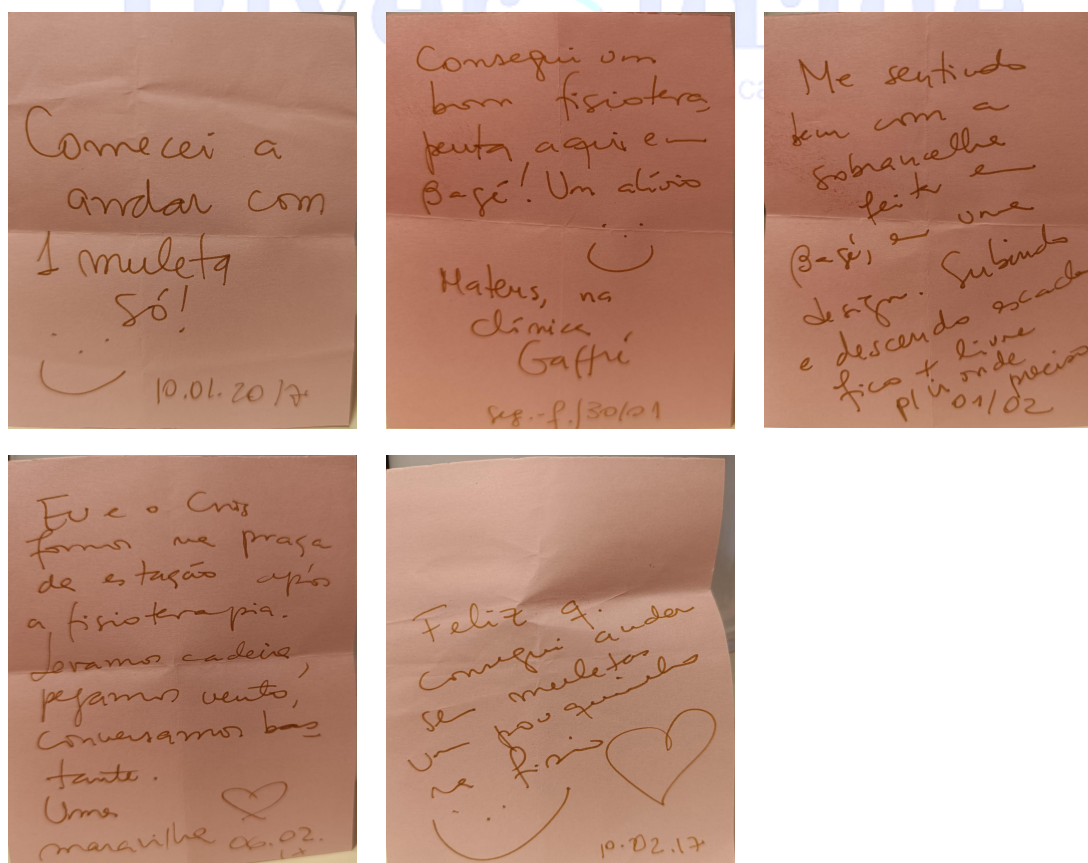 Comecei a
andar com
1 muleta
só!
10.01.2017
Consegui um
bom fisiotera
peuta aqui em
Bagé! Um alívio
Mateus, na
clínica
Gaffré
seg.-f./30/01
Me sentindo
bem com a
sobrancelha
feita em
Bagé, em uma
design. Subindo
e descendo escada
fico + livre
p/ ir onde preciso
01/02
Eu e o Cris
fomos na praça
da estação após
a fisioterapia.
Levamos cadeira,
pegamos vento,
conversamos bas
tante.
Uma
maravilha 06.02.
17
Feliz q.
consegui andar
sem muletas
um pouquinho
na fisio
10.02.17